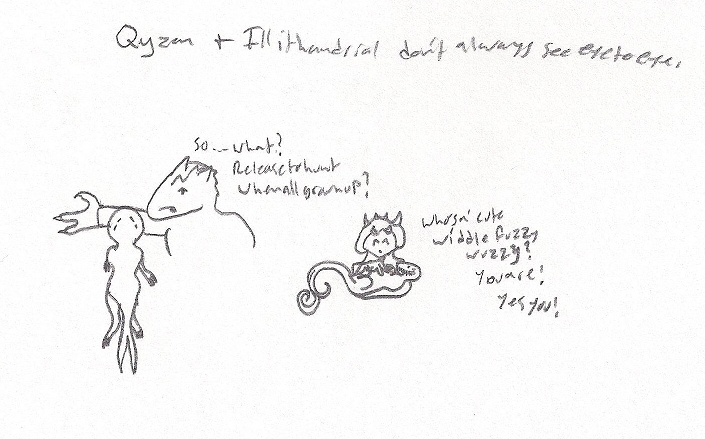 Qyzen + Illithandrial don't always see eye to eye.
So... what?
Release to hunt
when all grown up?
Whosa' cute
widdle fuzzy
wuzzy?
You are!
Yes you!